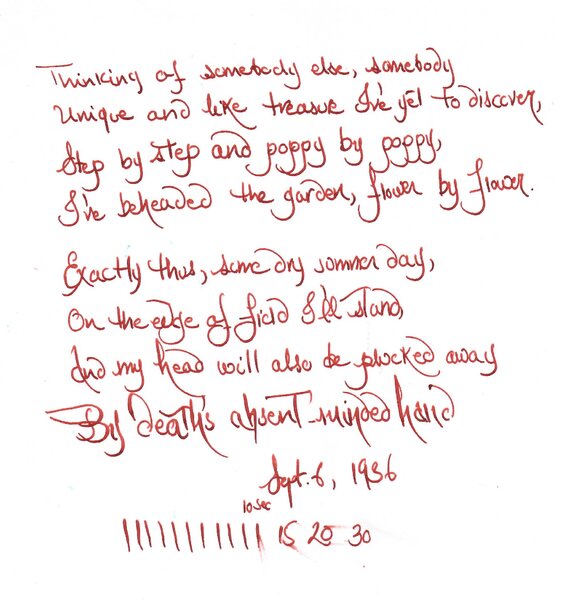 Thinking of somebody else, somebody
Unique and like treasure I've yet to discover,
Step by step and poppy by poppy,
I've beheaded the garden, flower by flower.
Exactly thus, some dry sommer day,
On the edge of field I'll stand,
And my head will also be plucked away
By death's absent-minded hand
Sept. 6, 1936
10 sec
||||||||||| 15 20 30